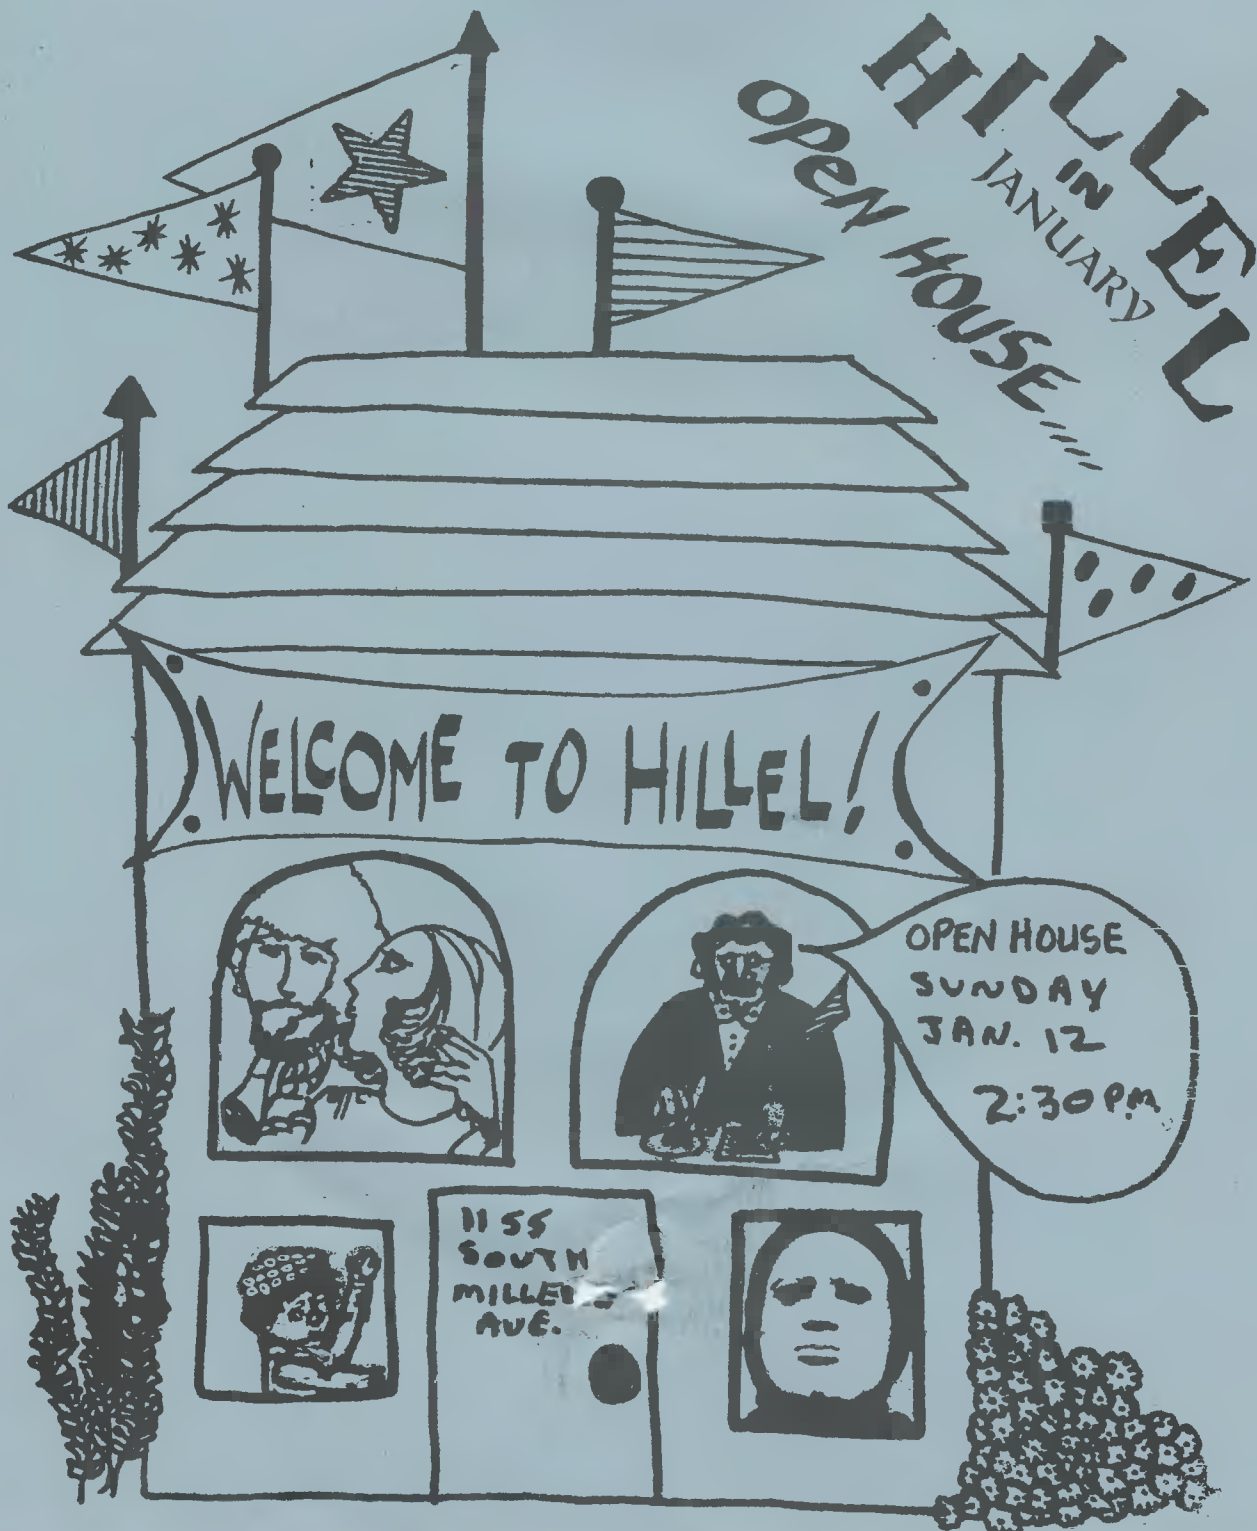 HILLEL
IN
JANUARY
OPEN HOUSE....
WELCOME TO HILLEL!
OPEN HOUSE
SUNDAY
JAN. 12
2:30 P.M.
1155
SOUTH
AVE.